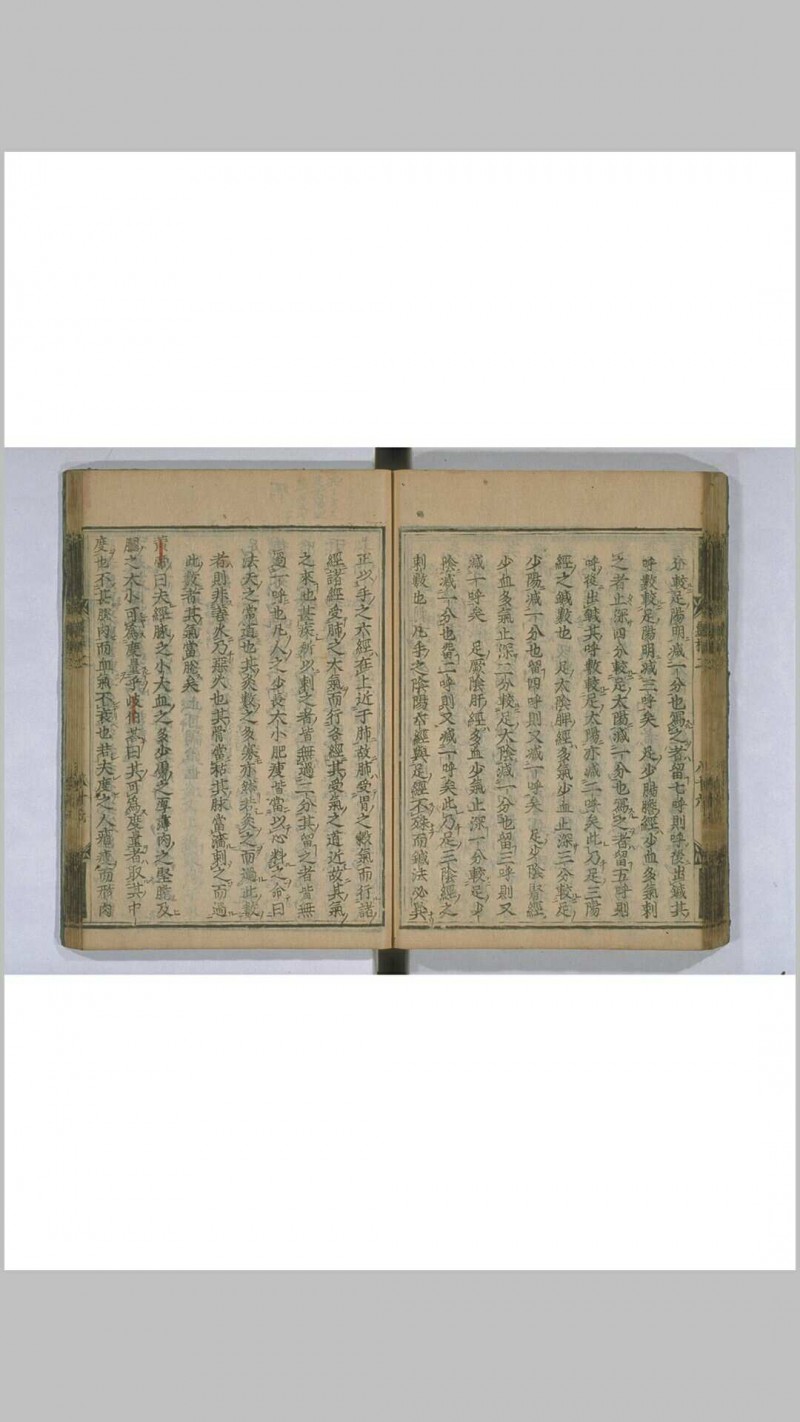 分較足陽明減一分也寫之者留七呼則呼後出鍼其
呼數較足陽明減三呼矣 足少陽膽經少血多氣刺
之者止深四分較足太陽減一分也寫之者留五呼則
呼後出鍼其呼數較足太陽亦減二呼矣此乃足三陽
經之鍼數也 足太陰脾經多氣少血止深三分較足
少陽減一分也留四呼則又減一呼矣 足少陰腎經
少血多氣止深二分較足太陰減一分也留三呼則又
減一呼矣 足厥陰肝經多血少氣止深一分較足少
陰減一分也留二呼則又減一呼矣此乃足三陰經之
刺數也 凡手之陰陽六經與足經不殊而鍼法必異
正以手之六經在上近于肺故肺受胃之穀氣而行諸
經諸經受肺之大氣而行各經其受氣之道近故其氣
之來也甚疾所以刺之者皆無過二分其留之者皆無
過一呼也凡人之少長大小肥瘦皆當以心料之命曰
法天之常道也其灸數之多寡亦然若灸之而過此數
者則非善火乃惡火也其骨當枯其脉當濇刺之而過
此數者其氣當脫矣
帝曰夫經脉之小大血之多少膚之厚薄肉之堅脆及
膕之大小可為度量乎岐伯荅曰其可為度量者取其中
度也不甚脫肉而血氣不衰也若夫度之人痟瘦而形肉